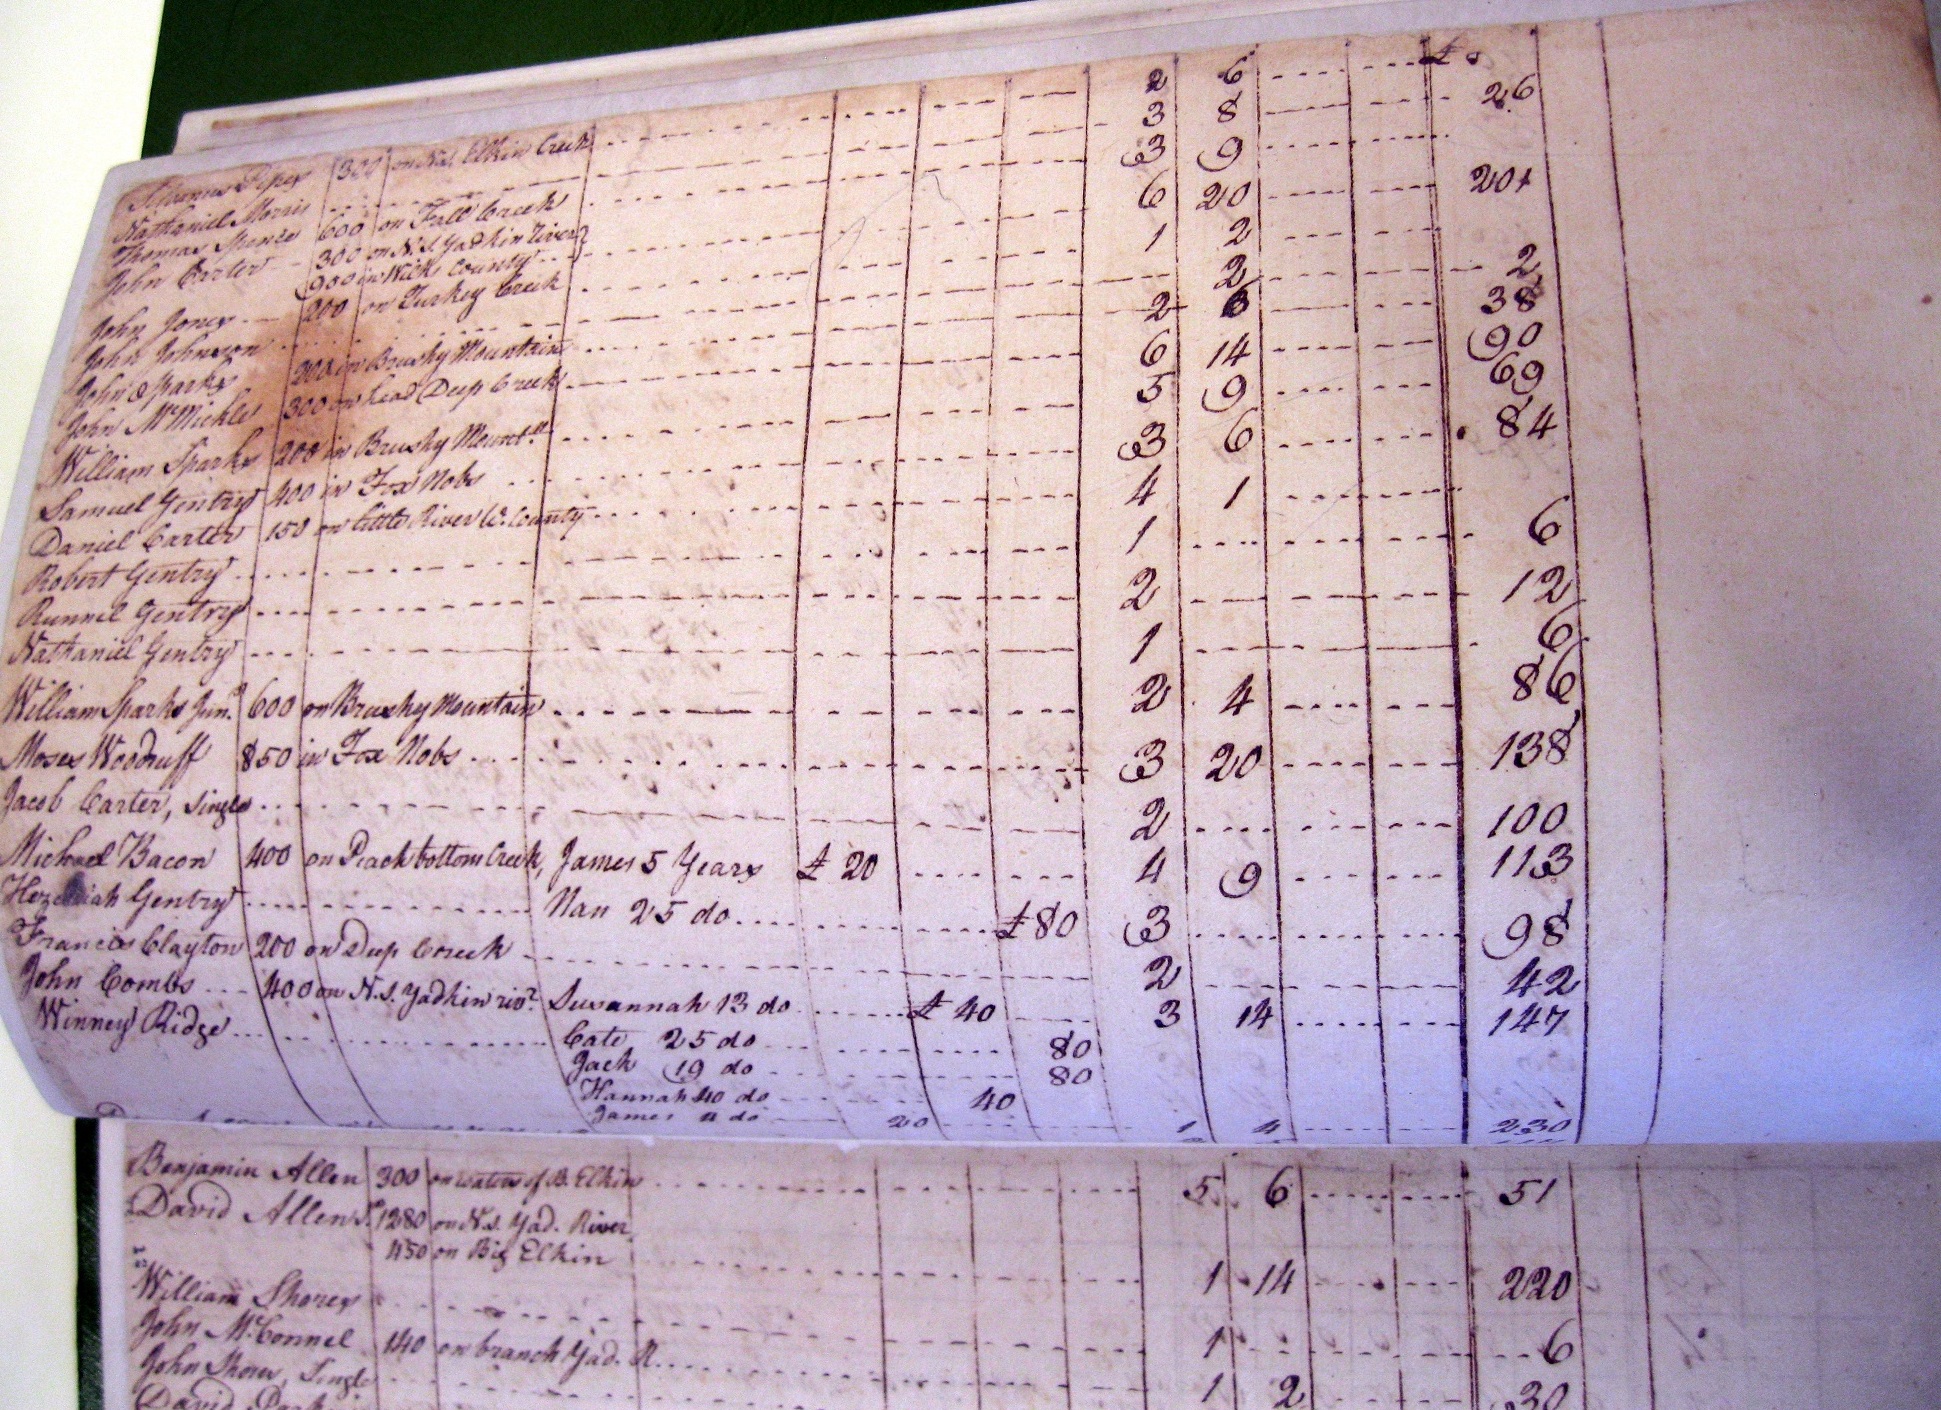 £ s
300 on No. Elkin Creek 2 6 26
Nathaniel Morris 3 8
Thomas Spence 600 on Fall Creek 3 9
John Carter 300 on N. S. Yadkin River 6 20 201
900 in Wilks County
John Jones 200 on Turkey Creek 1 2
John Johnson 2 2
John Sparks 200 in Brushy Mountain 2 6 38
John McMickle 300 on head Deep Creek 6 14 90
William Sparks 200 in Brushy Mount.n 5 9 69
Samuel Gentry 400 in Fox Nobs 3 6 84
Daniel Carter 150 on little River W. County 4 1
Robert Gentry 1 6
Runnel Gentry 2 12
Nathaniel Gentry 1 6
William Sparks Jun.r 600 on Brushy Mountain 2 4 86
Moses Woodruff 850 in Fox Nobs 3 20 138
Jacob Carter, single 2 100
Michael Bacon 400 on Peach bottom Creek, James 5 Years £ 20 4 9 113
Hezekiah Gentry Nan 25 do £ 80 3 98
Francis Clayton 200 on Deep Creek 2 42
John Combs 400 on N. S. Yadkin riv.r Susannah 13 do £ 40 3 14 147
Winney Ridge Cate 25 do 80
Jack 19 do 80
Hannah 40 do 40
James 11 do 20 1 4 230
Benjamin Allen 300 on waters of B. Elkin 5 6 51
David Allen S.r 1280 on N. S. Yad. River
450 on Big Elkin 1 14 220
William Shores
John McConnel 140 on branch Yad. R. 1 6
John Shour, Single 1 2 30
David